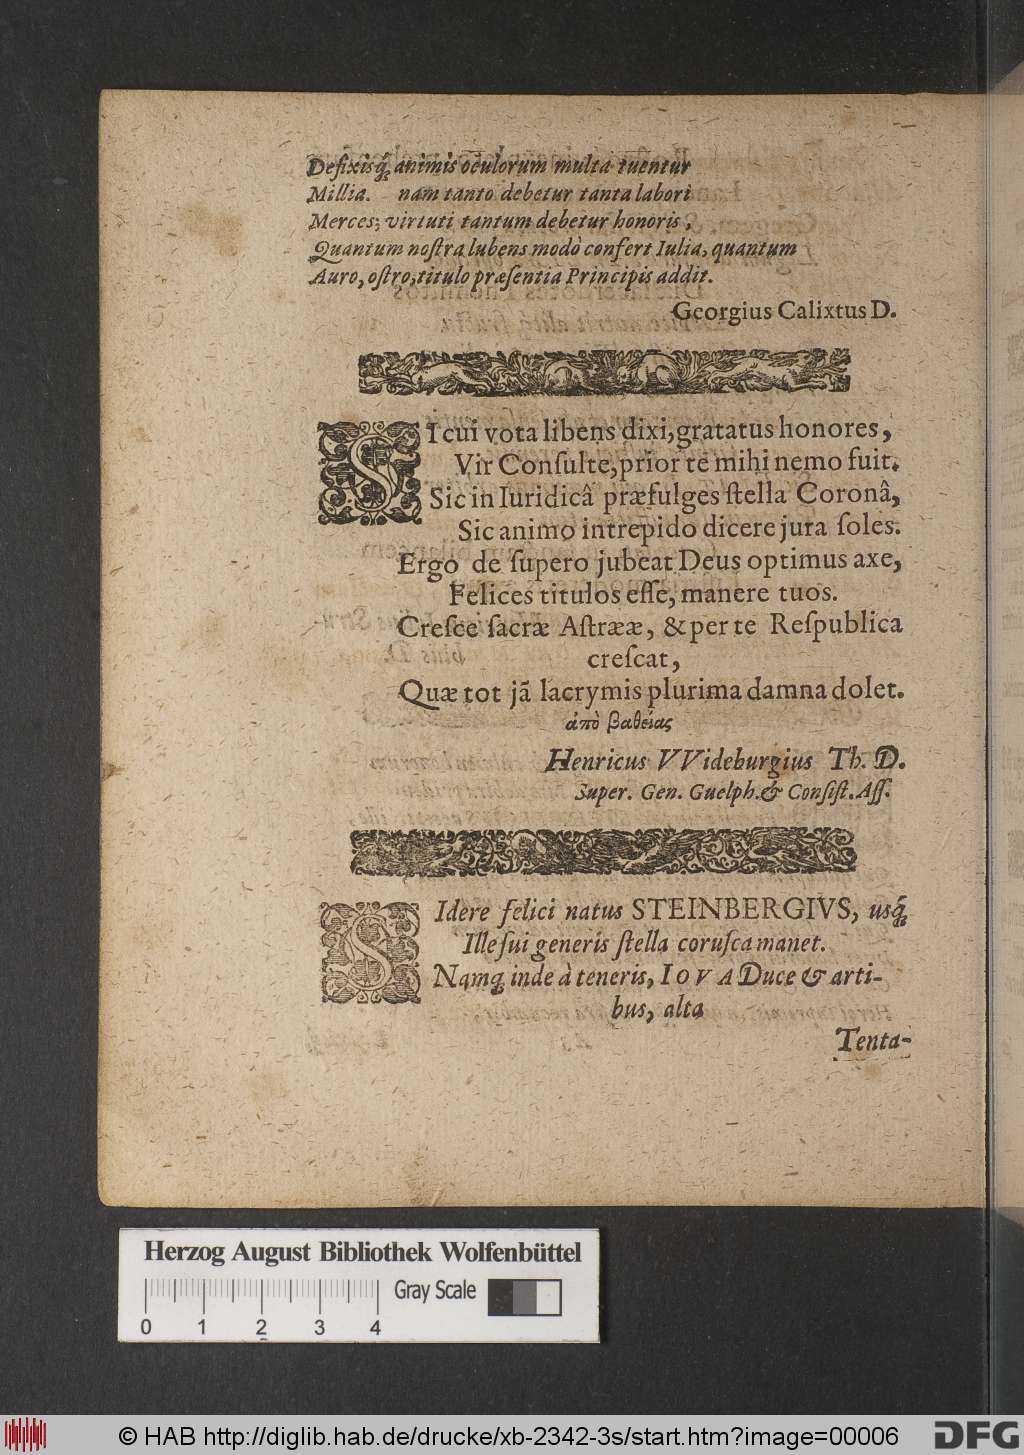 Defixisq́; animis oculorum multa tuentur
Millia. nam tanto debetur tanta labori
Merces; virtuti tantum debetur honoris,
Quantum nostra lubens modò confert Iulia, quantum
Auro, ostro, titulo præsentia Principis addit.
Georgius Calixtus D.
SIcui vota libens dixi, gratatus honores,
Vir Consulte, prior te mihi nemo fuit.
Sic in Iuridicâ præfulges stella Coronâ,
Sic animo intrepido dicere jura soles.
Ergo de supero jubeat Deus optimus axe,
Felices titulos esse, manere tuos.
Cresce sacræ Astrææ, & per te Respublica
crescat,
Quæ tot jā lacrymis plurima damna dolet.
ἀπὸ βαθείας
Henricus VVideburgius Th. D.
Super. Gen. Guelph. & Consist. Ass.
SIdere felici natus STEINBERGIVS, usq́;
Ille sui generis stella corusca manet.
Namq; inde à teneris, IOVA Duce & arti-
bus, alta
Tenta-
Herzog August Bibliothek Wolfenbüttel
Gray Scale
0 1 2 3 4
© HAB http://diglib.hab.de/drucke/xb-2342-3s/start.htm?image=00006
DFG